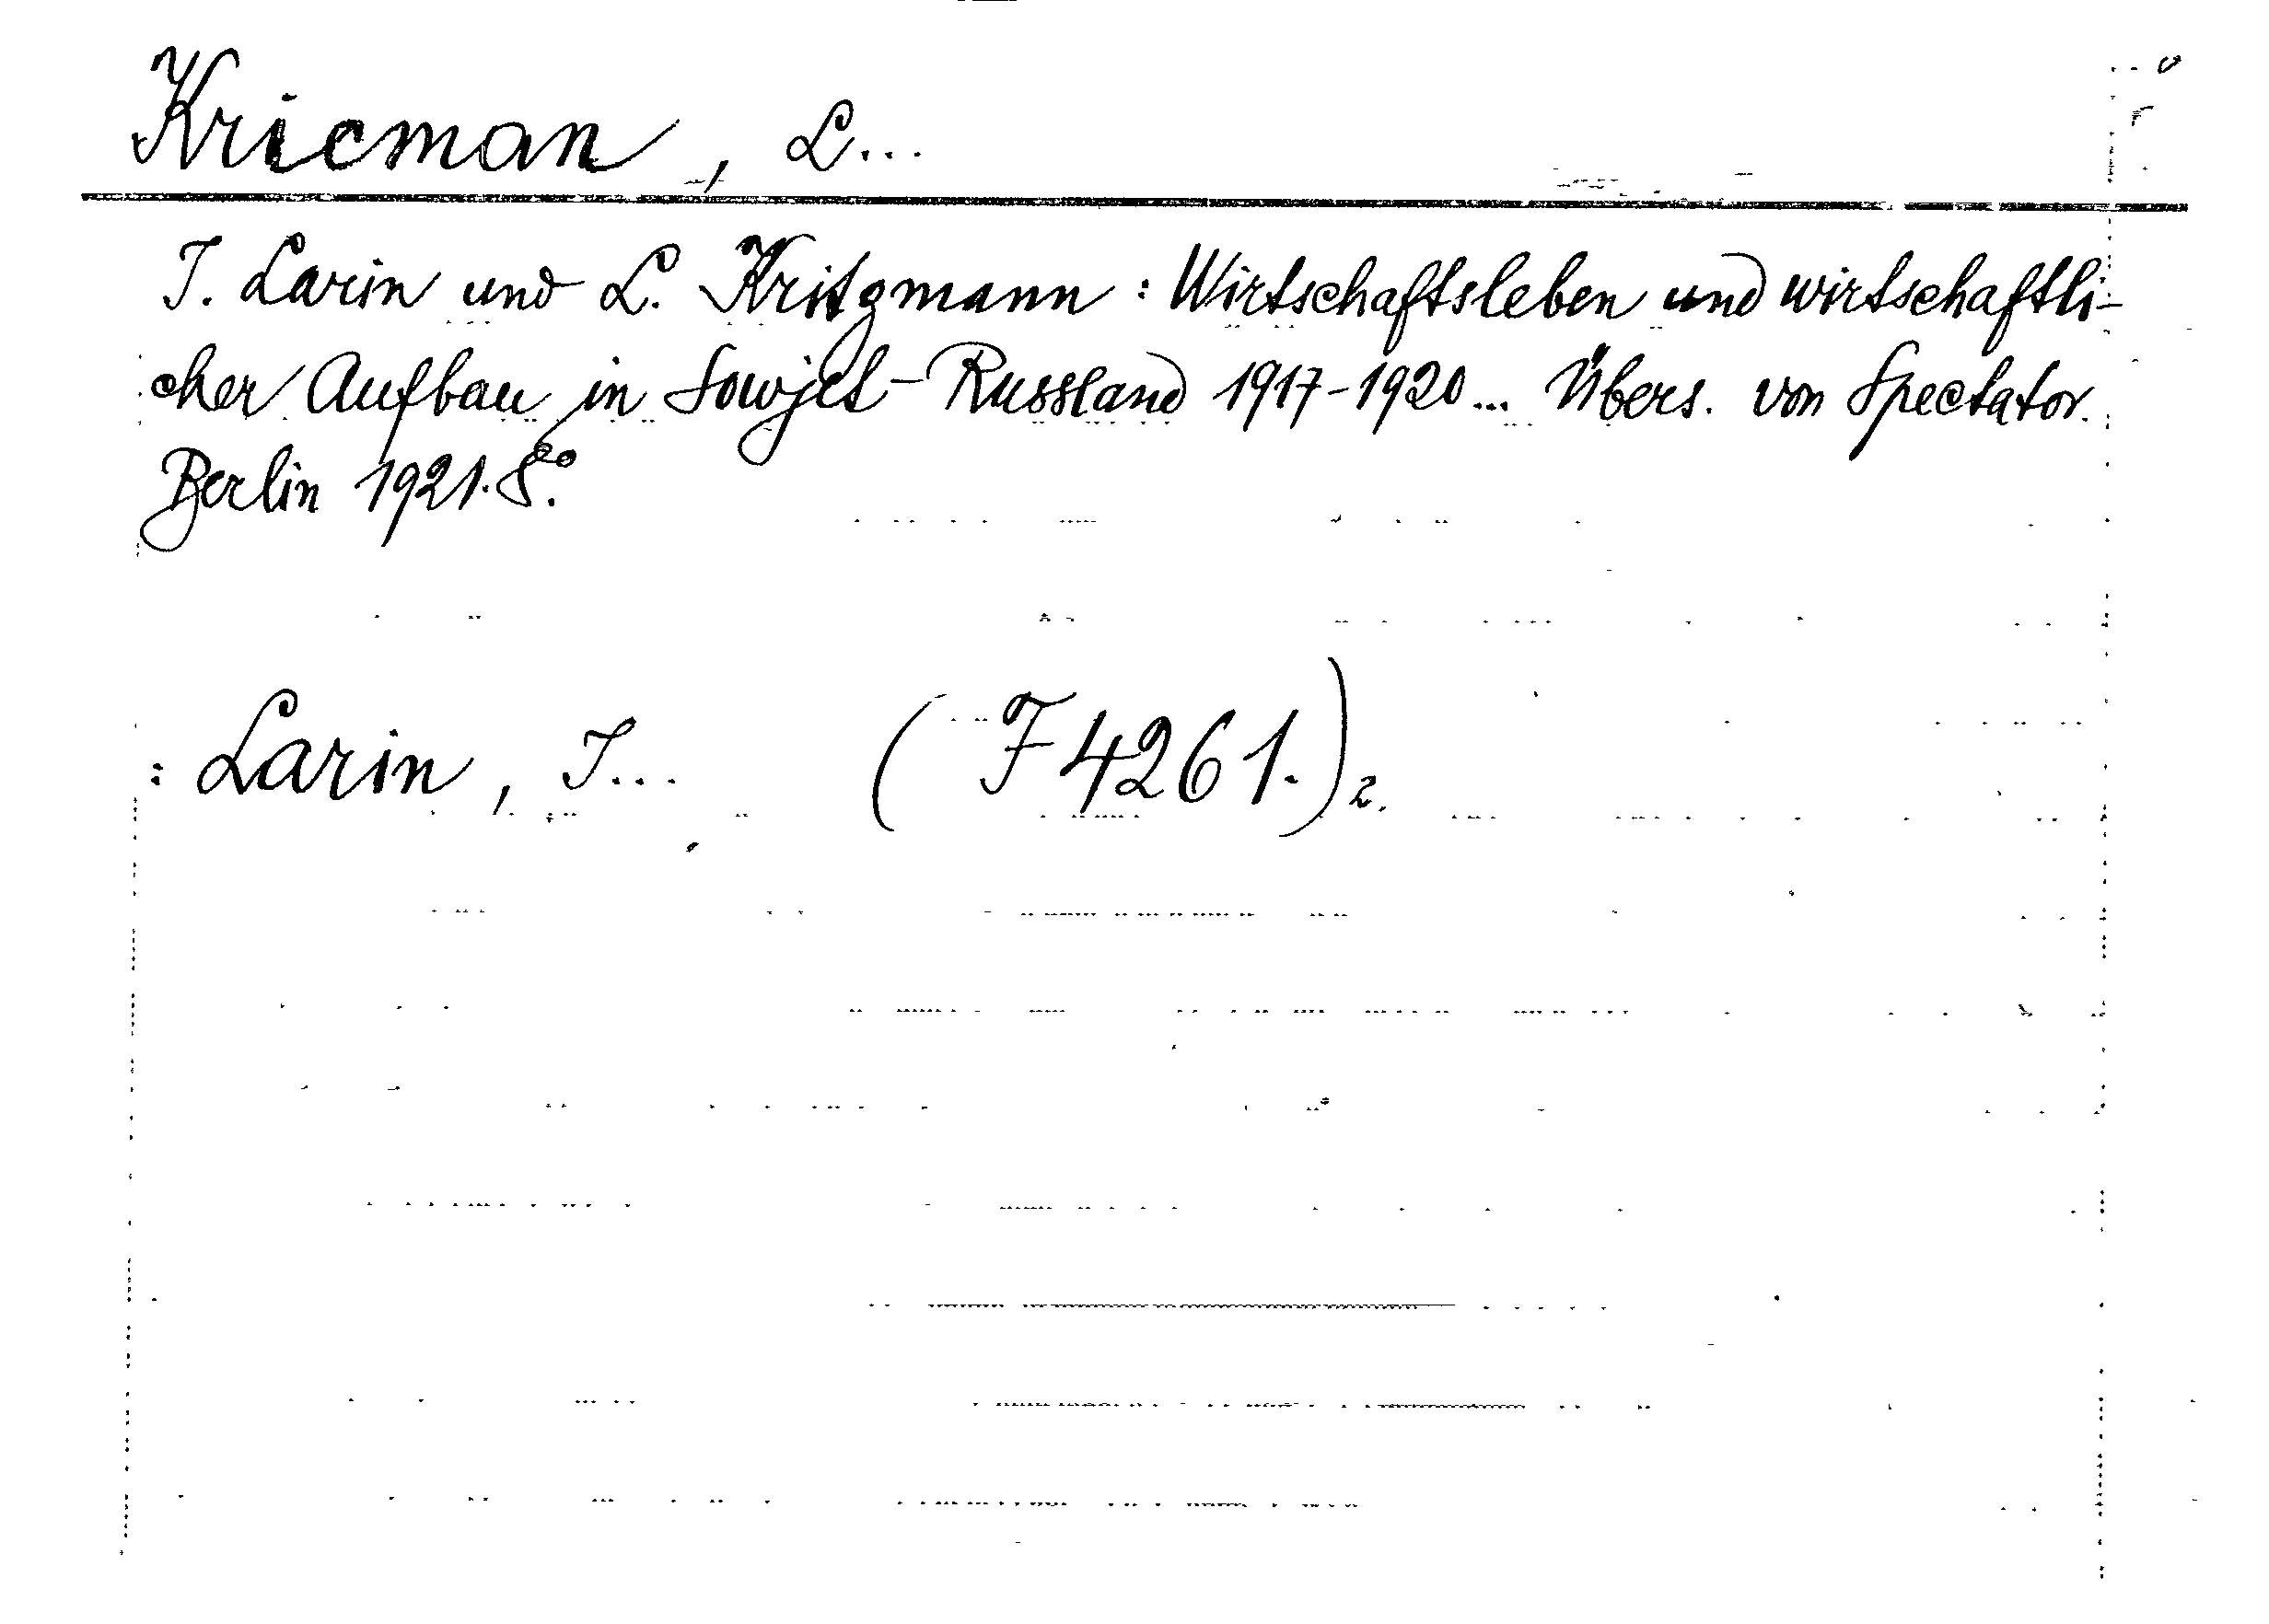 Kricman, L...
J. Larin und L. Kritzmann : Wirtschaftsleben und wirtschaftli-
cher Aufbau in Sowjet-Russland 1917-1920... Übers. von Spectator.
Berlin 1921. 8°.
: Larin, J... (F 4261.)2.